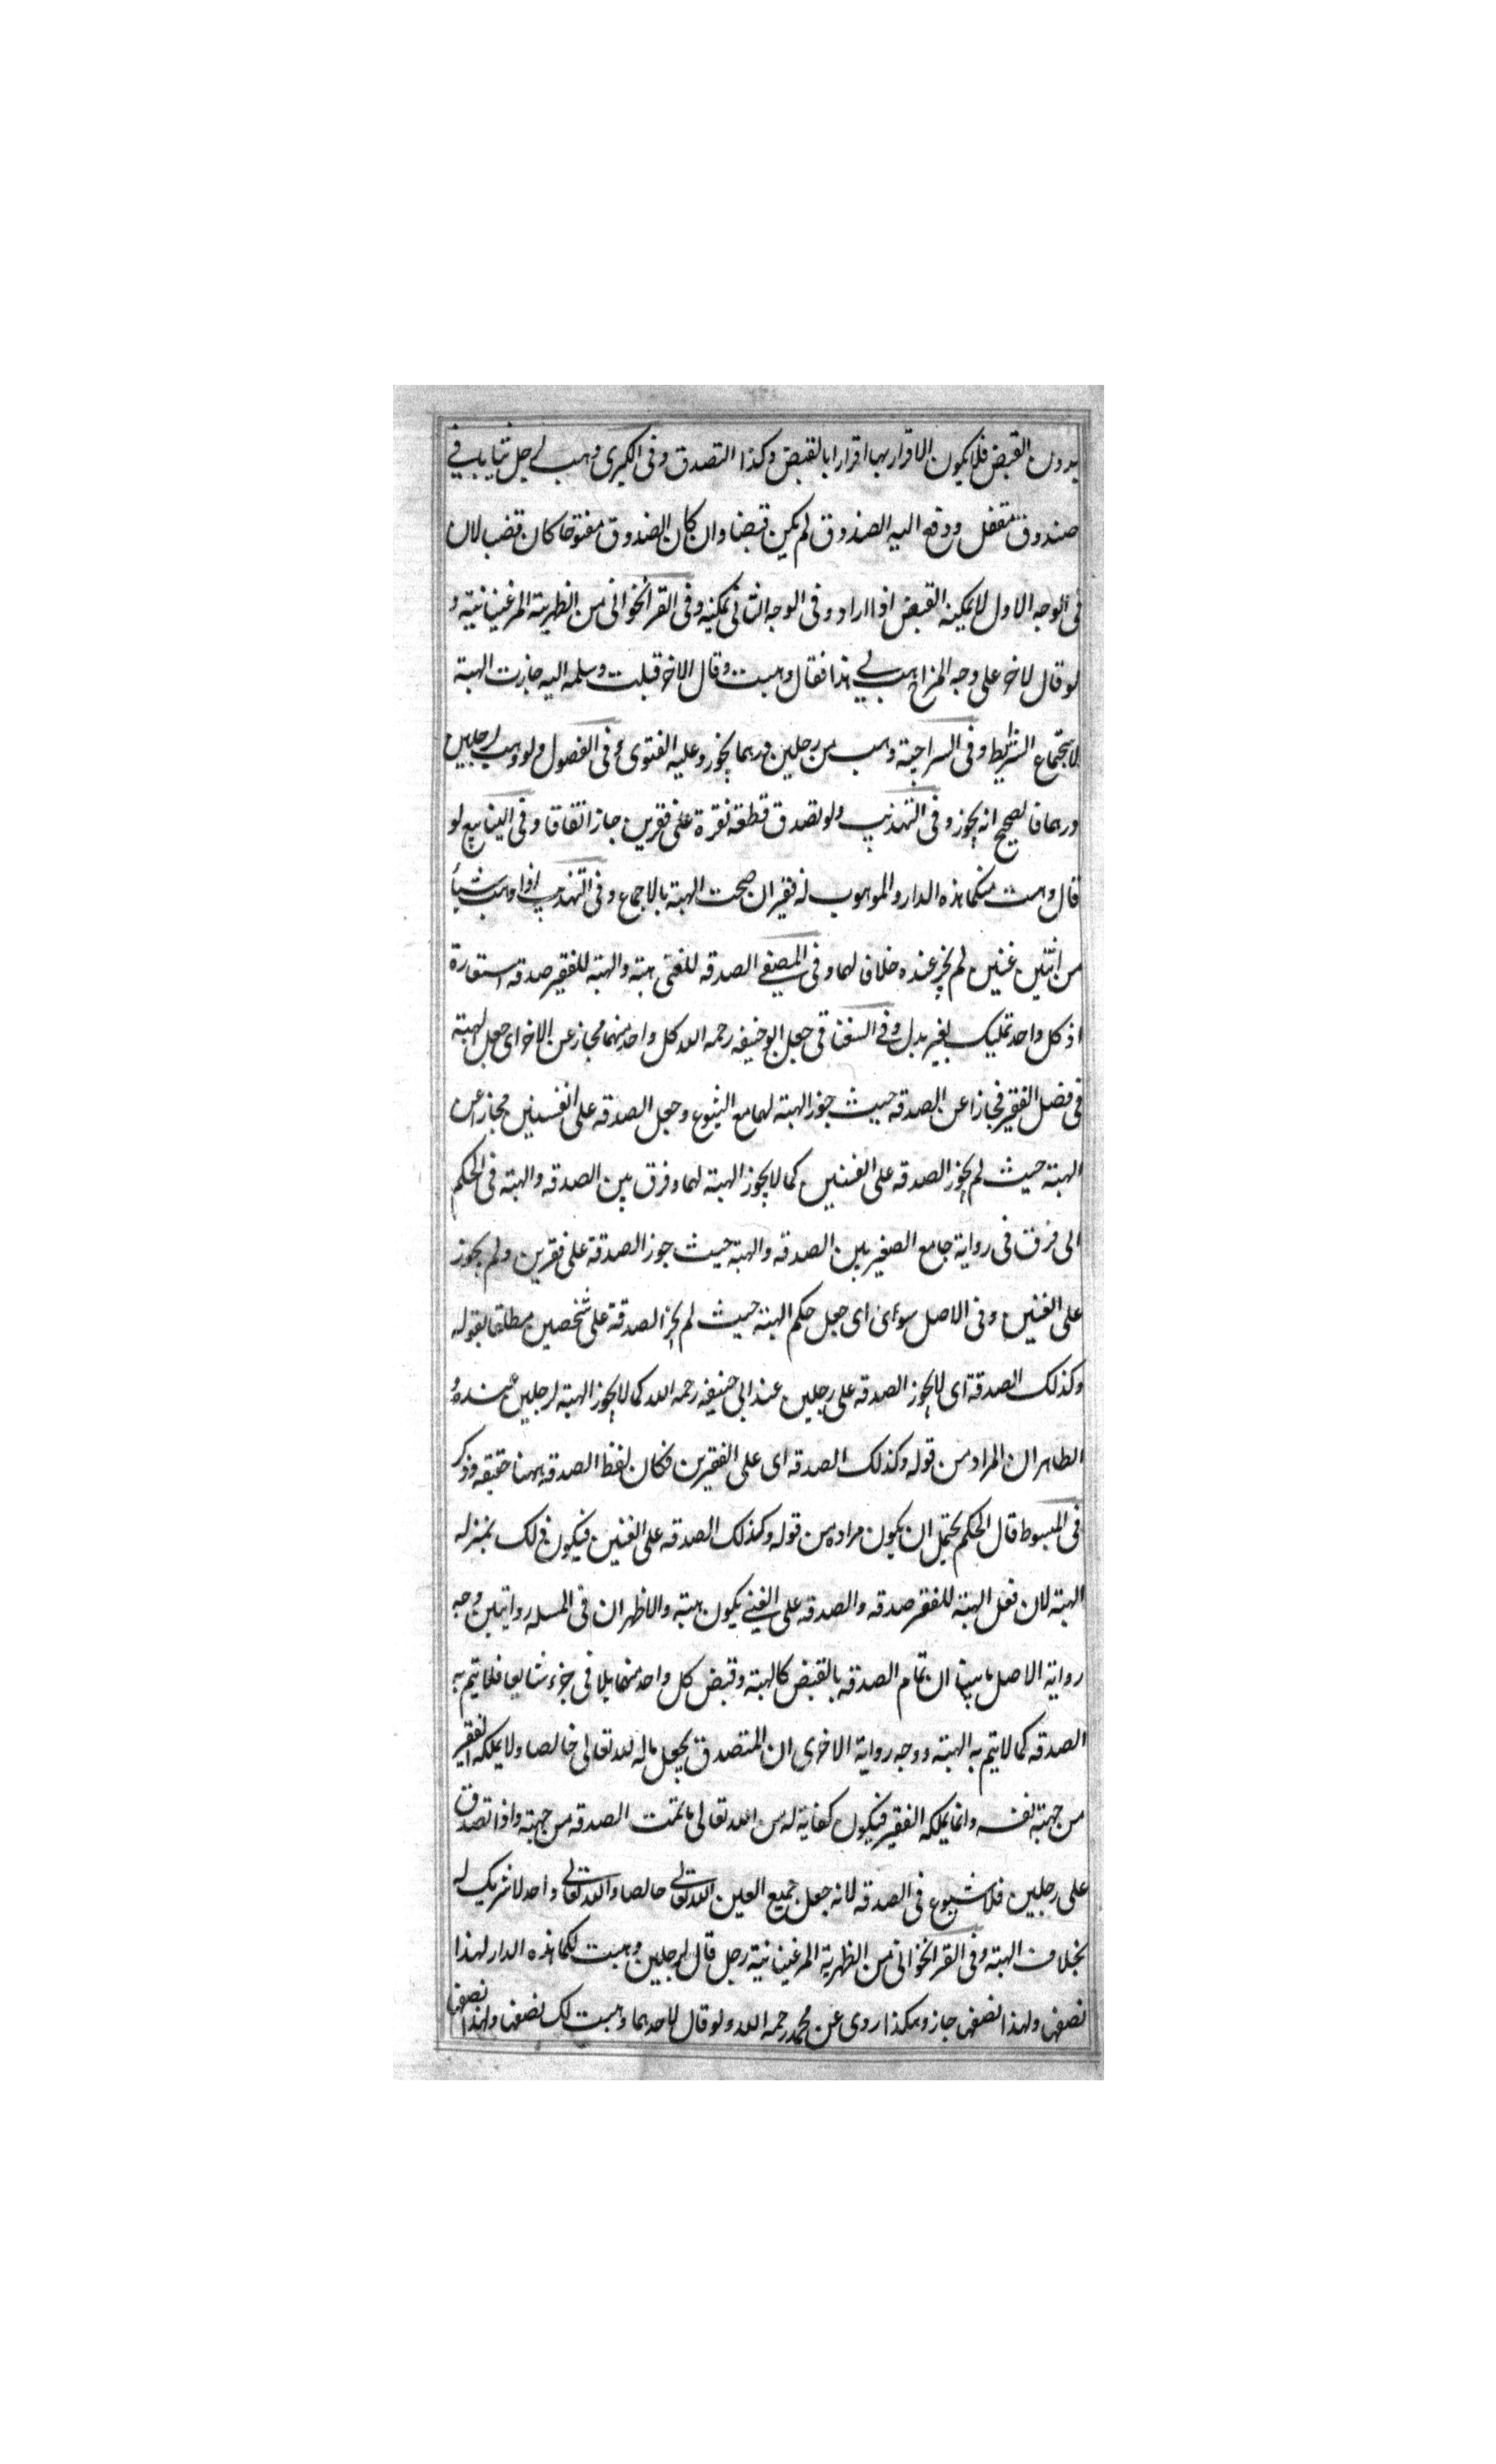 بدون القبض فلا يكون الاقرار بها اقرارا بالقبض وكذا التصدق وفى الكبرى وهب لرجل ثيابا فى
صندوق مقفل ودفع اليه الصندوق لم يكن قبضا وان كان الصندوق مفتوحا كان قبضا لان
فى الوجه الاول لا يمكنه القبض اذا اراد وفى الوجه الثانى يمكنه وفى القراخوانى من الظهيرية المرغينانية و
لو قال لاخر على وجه المزاح هب لى هذا فقال وهبت وقال الاخر قبلت وسلمه اليه جازت الهبة
لاستجماع الشرايط وفى السراجية وهب من رجلين درهما يجوز وعليه الفتوى وفى الفصول ولو وهب لرجلين
درهما فالصحيح انه يجوز وفى التهذيب ولو تصدق قطعة نقرة على فقرين جاز اتفاقا وفى الينابيع لو
قال وهبت منكما هذه الدار والموهوب له فقيران صحت الهبة بالاجماع وفى التهذيب اذا وهب شيأ
من اثنين غنين لم يجز عنده خلافا لهما وفى المصفى الصدقه للغنى هبته والهبة للفقير صدقه استعارة
اذ كل واحد تمليك بغير بدل وفى السغناقى جعل ابو حنيفه رحمه الله كل واحد منهما مجاز عن الاخر اى جعل الهبة
فى فصل الفقير مجازا عن الصدقه حيث جوز الهبة لهما مع الشيوع وجعل الصدقه على الغنيين مجازا عن
الهبة حيث لم يجوز الصدقه على الغنيين كما لا يجوز الهبة لهما وفرق بين الصدقه والهبة فى الحكم
الى فرق فى رواية جامع الصغير بين الصدقه والهبة حيث جوز الصدقة على فقرين ولم يجوز
على الغنين وفى الاصل سوى اى جعل حكم الهبة حيث لم يجز الصدقة على شخصين مطلقا بقوله
وكذلك الصدقة اى لا يجوز الصدقه على رجلين عند ابى حنيفه رحمه الله كما لا يجوز الهبة لرجلين عنده و
الظاهر ان المراد من قوله وكذلك الصدقه اى على الفقيرين فكان لفظ الصدقه ههنا حقيقه وذكر
فى المبسوط قال الحكم يحتمل ان يكون مراده من قوله وكذلك الصدقه على الغنين فيكون ذلك بمنزله
الهبة لان فعل الهبة للفقير صدقه والصدقه على الغنى يكون هبته والاظهر ان فى المسله روايتين وجه
رواية الاصل ما بينا ان تمام الصدقه بالقبض كالهبة وقبض كل واحد منهما يلاقى جزء شايعا فلا يتم به
الصدقه كما لا يتم به الهبة ووجه رواية الاخرى ان المتصدق يجعل ماله لله تعالى خالصا ولا يملكه الفقير
من جهته نفسه وانما يملكه الفقير فيكون كفاية له من الله تعالى ما تمت الصدقه من جهته واذا تصدق
على رجلين فلا شيوع فى الصدقه لانه جعل جميع العين لله تعالى خالصا والله تعالى واحد لا شريك له
بخلاف الهبة وفى القراخوانى من الظهيرية المرغينانية رجل قال لرجلين وهبت لكما هذه الدار لهذا
نصفها ولهذا نصفها جاز وهكذا روى عن محمد رحمه الله ولو قال لاحدهما وهبت لك نصفها ولهذا نصفها